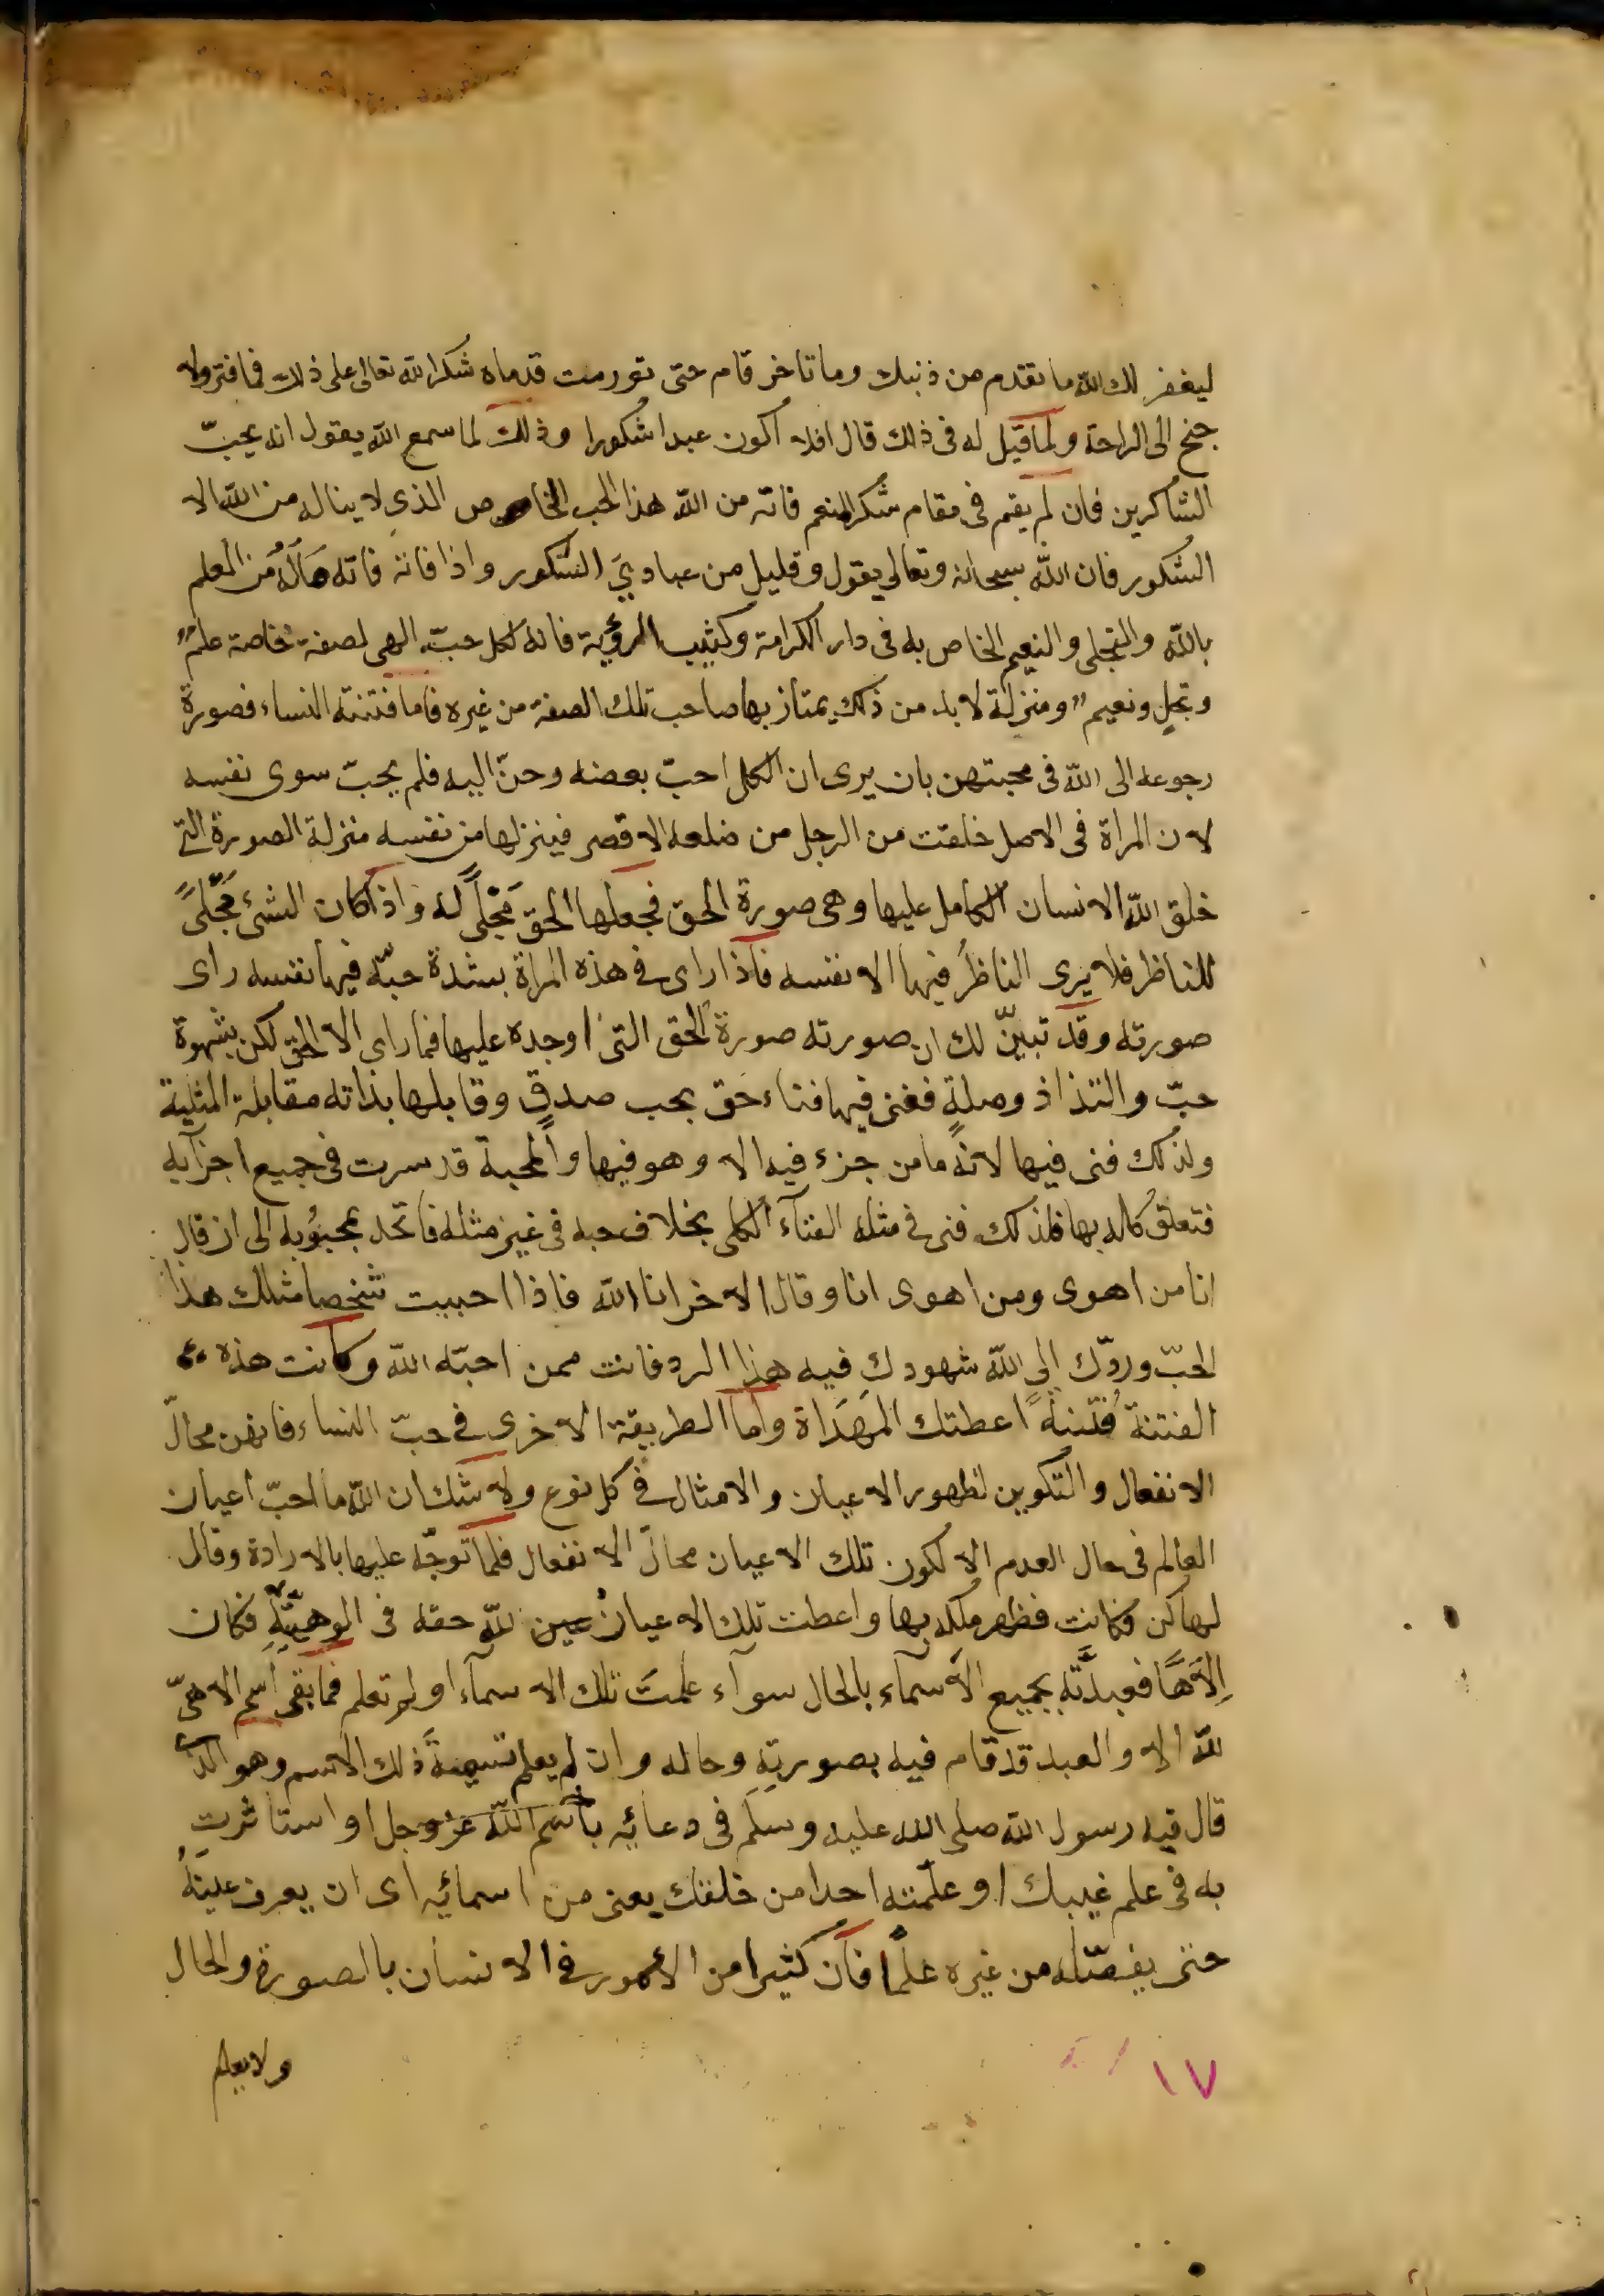 ليغفر لك الله ما تقدم من ذنبك وما تاخر قام حتى تورمت قدماه شكرا لله تعالى على ذلك فما فتر ولا
جنح الى الراحة ولما قيل له فى ذلك قال افلا اكون عبدا شكورا وذلك لما سمع الله يقول انه يحبّ
الشاكرين فان لم يقم فى مقام شكر المنعم فاته من الله هذا الحب الخاص الذى لا يناله من الله الا
الشكور فان الله سبحانه وتعالى يقول وقليل من عبادىَ الشكور واذا فاته فاته ماله من العلم
بالله والتجلى والنعيم الخاص به فى دار الكرامة وكثيب الرؤية فانه لكل حبّ الهى لصفة خاصة علمٌ
وتجلٍ ونعيمٌ ومنزلة لا بد من ذلك يمتاز بها صاحب تلك الصفة من غيره فاما فتنته النساء فصورة
رجوعه الى الله فى محبتهن بان يرى ان الكل احبّ بعضه وحنّ اليه فلم يحبّ سوى نفسه
لان المراة فى الاصل خلقت من الرجل من ضلعه الاقصر فينزلها من نفسه منزلة الصورة التى
خلق الله الانسان الكامل عليها وهى صورة الحق فجعلها الحق مَجْلًى له واذا كان الشئ مَجْلًى
للناظر فلا يرى الناظرُ فيها الا نفسه فاذا راى فى هذه المراة بشدة حبّه فيها نفسه راى
صورته وقد تبيّن لك ان صورته صورة الحق التى اوجده عليها فما راى الا الحق لكن بشهوة
حبّ والتذاذ وصلةٍ ففنى فيها فناء حق بحب صدقٍ وقابلها بذاته مقابلة المثلية
ولذلك فنى فيها لانه ما من جزء فيه الا وهو فيها والمحبة قد سرت فى جميع اجزآيه
فتعلق كله بها فلذلك فنى فى مثله الفنآء الكلى بخلاف حبه فى غير مثله فاتحد بمحبوبه الى ان قال
انا من اهوى ومن اهوى انا وقال الاخر انا الله فاذا احببت شخصا مثلك هذا
الحبّ وردّك الى الله شهودك فيه هذا الرد فانت ممن احبّه الله وكانت هذه
الفتنة فتنةً اعطتك المهداة واما الطريقة الاخرى فى حبّ النساء فانهن محالّ
الانفعال والتكوين لظهور الاعيان والامثال فى كل نوع ولا شك ان الله ما احبّ اعيان
العالم فى حال العدم الا لكون تلك الاعيان محالّ الانفعال فلما توجّه عليها بالارادة وقال
لها كن فكانت فظهر ملكه بها واعطت تلك الاعيان لله حقه فى الوهيّتهِ فكان
اِلٰهًا فعبدَتْه بجميع الاسمآء بالحال سوآء علمَت تلك الاسمآء اولم تعلم فما بقى اسم الاهىّ
لله الا والعبد قد قام فيه بصورتهِ وحاله وان لم يعلم نتيجةَ ذلك الاسم وهو الذى
قال فيه رسول الله صلى الله عليه وسلّم فى دعائِه باسم الله عزوجل او استاثرت
به فى علم غيبك او علمته احدا من خلقك يعنى من اسمائِه اى ان يعرف عينَهُ
حتى يفصّله من غيره علمًا فان كثيرا من الامور فى الانسان بالصورة والحال
ولا يعلم
١٧